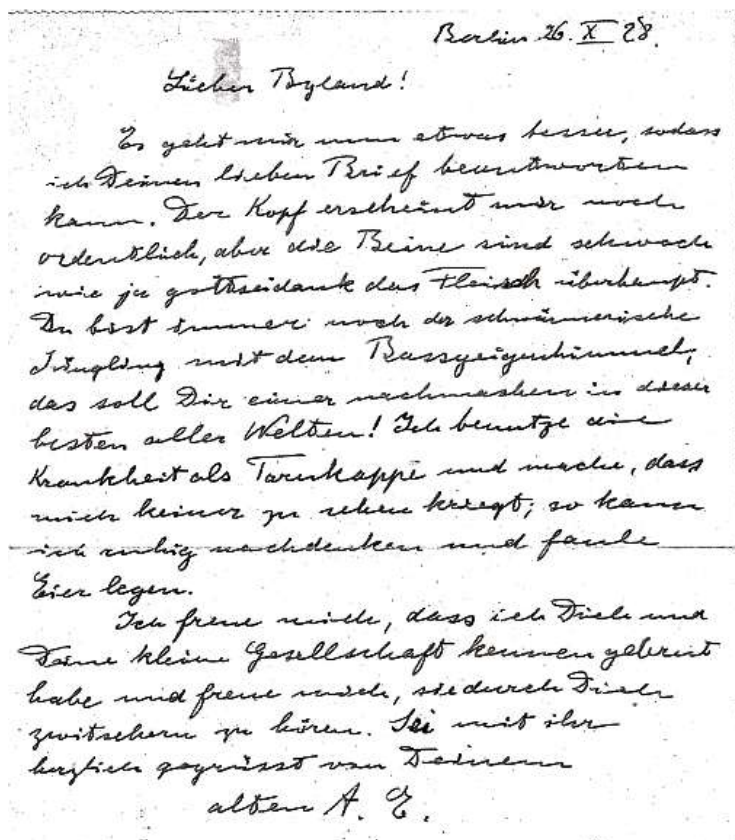 Berlin 26. X 28.
Lieber Byland!
Es geht mir nun etwas besser, sodass
ich Deinen lieben Brief beantworten
kann. Der Kopf erscheint mir noch
ordentlich, aber die Beine sind schwach
wie ja gottseidank das Fleisch überhaupt.
Du bist immer noch der schwärmerische
Jüngling mit dem Bassgeigenhimmel,
das soll Dir einer nachmachen in dieser
besten aller Welten! Ich benutze die
Krankheit als Tarnkappe und mache, dass
mich keiner zu sehen kriegt; so kann
ich ruhig nachdenken und faule
Eier legen.
Ich freue mich, dass ich Dich und
Deine kleine Gesellschaft kennen gelernt
habe und freue mich, sie durch Dich
zwitschern zu hören. Sei mit ihr
herzlich gegrüsst von Deinem
alten A. E.